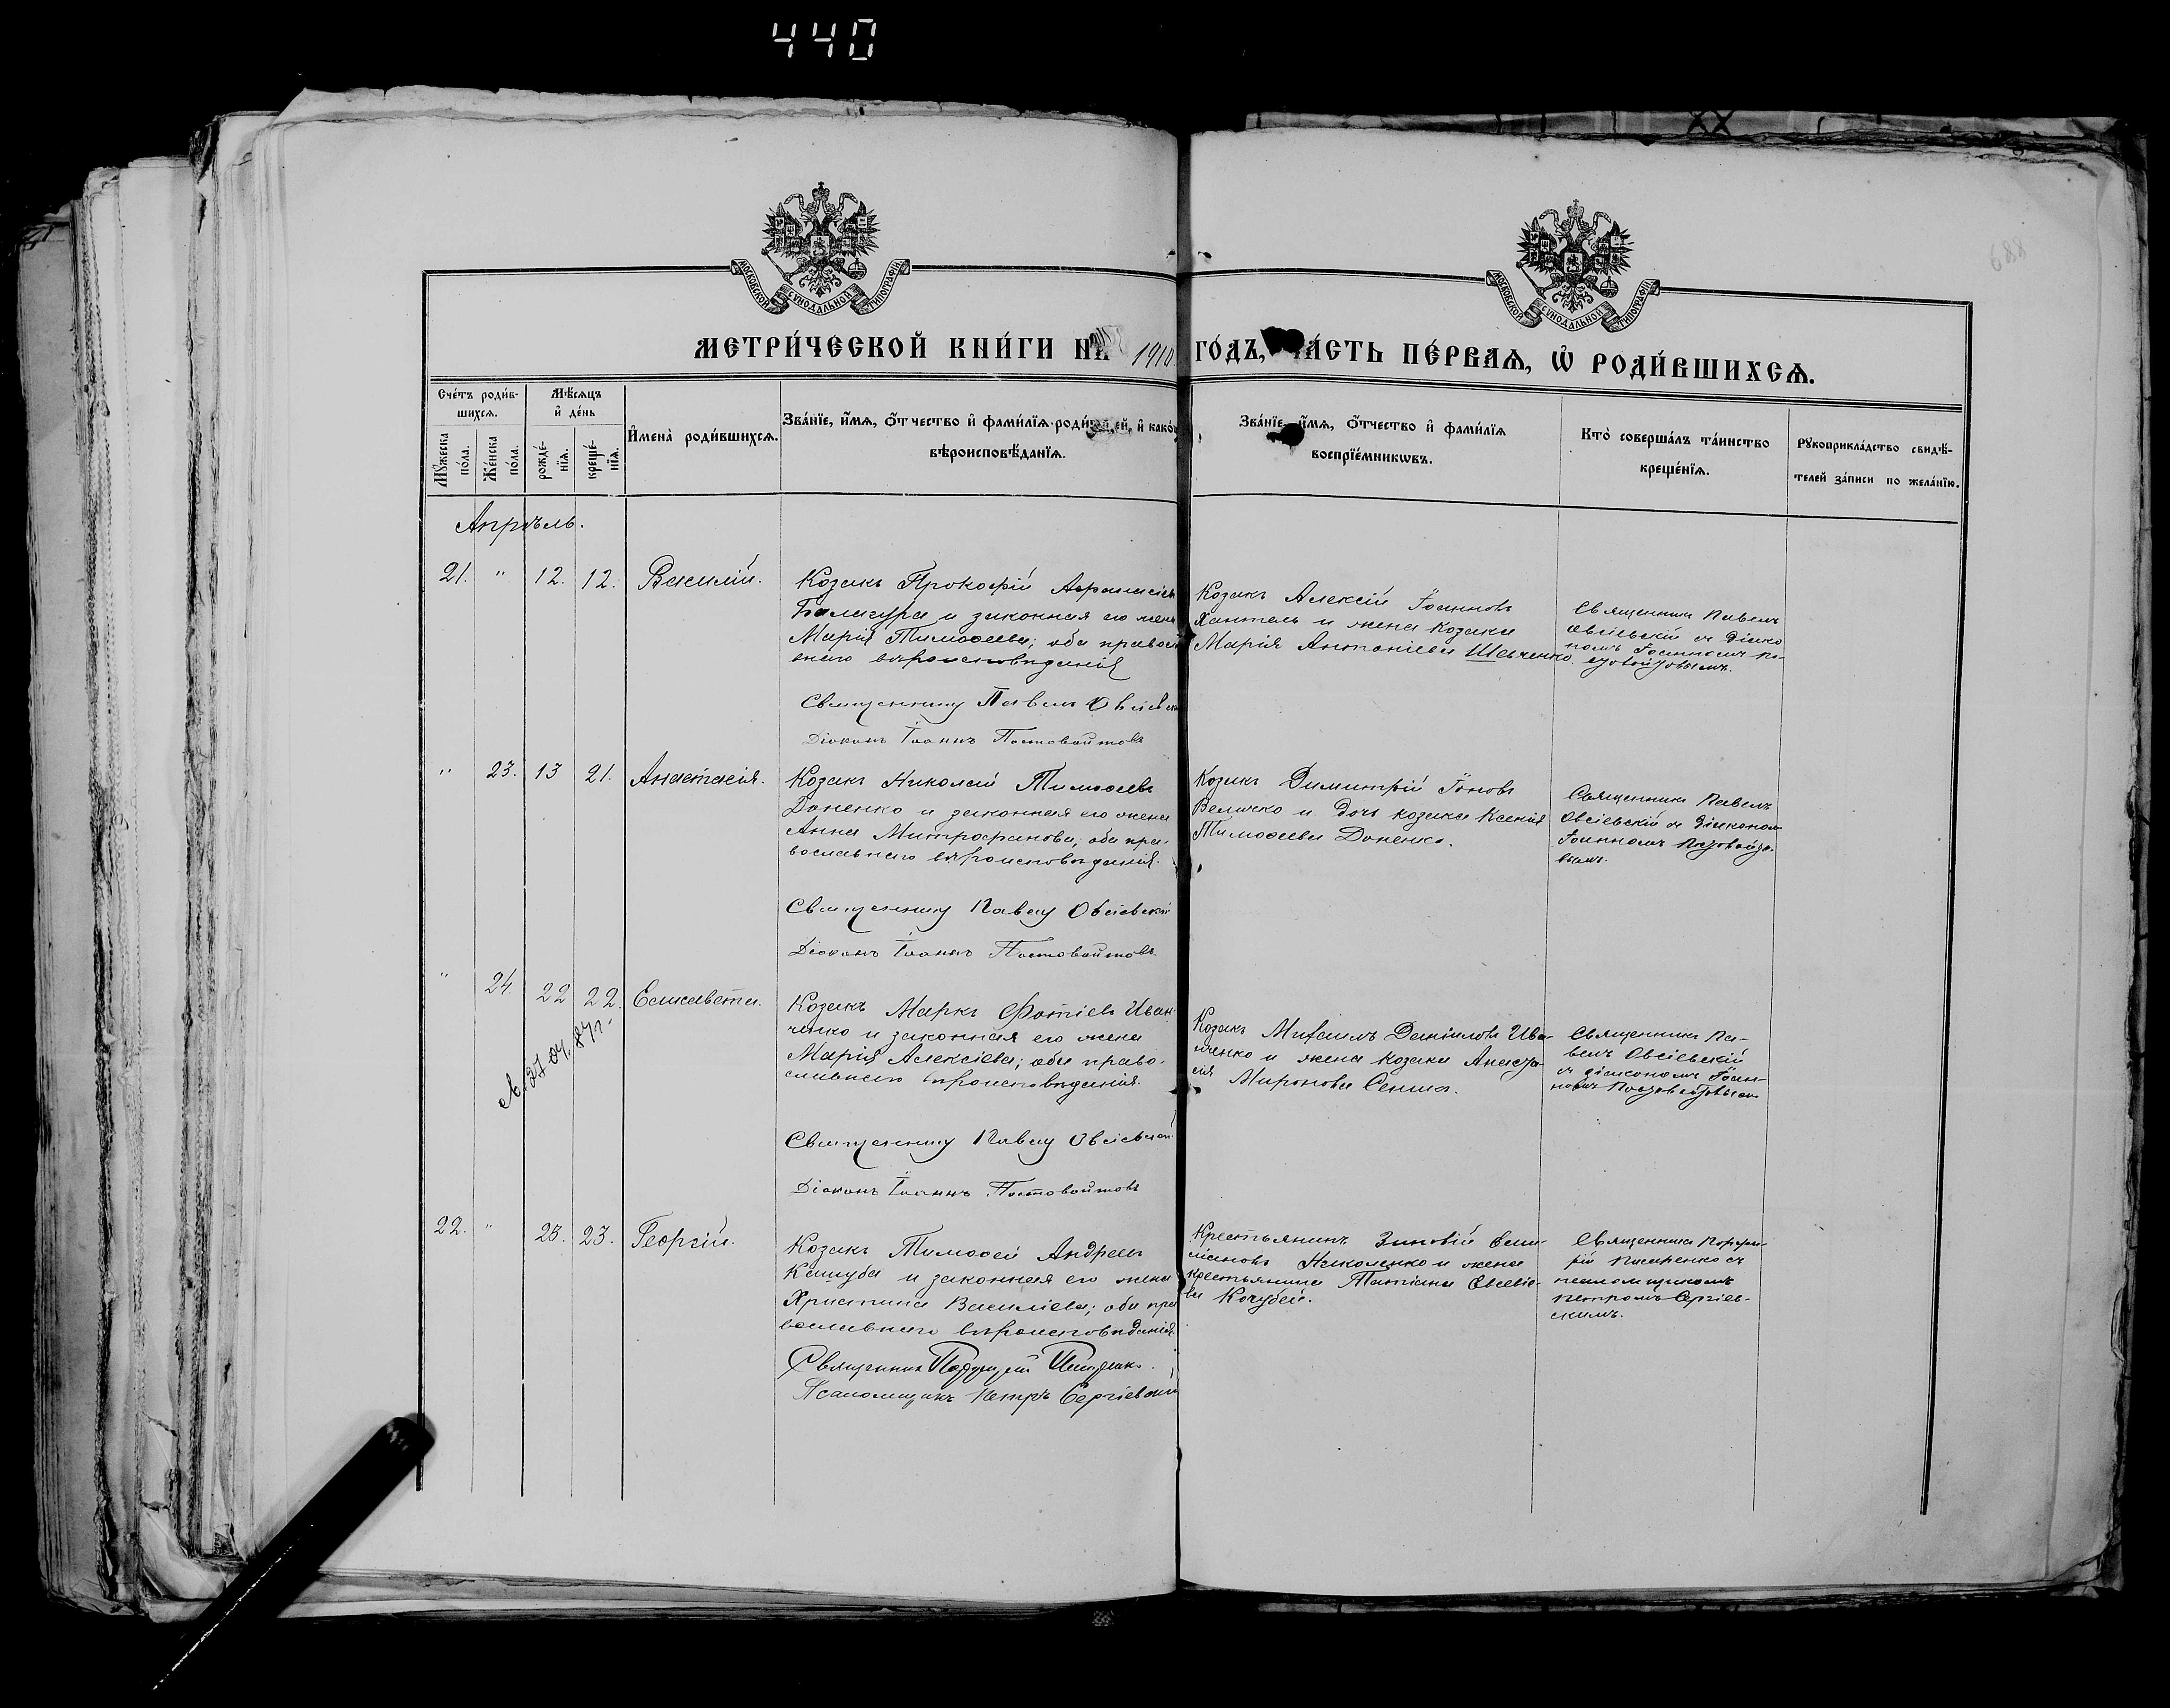 440
688
МОСКОВСКОЙ СѴНОДАЛЬНОЙ ТИПОГРАФІИ
МОСКОВСКОЙ СѴНОДАЛЬНОЙ ТИПОГРАФІИ
МЕТРИ́ЧЕСКОЙ КНИ́ГИ НА 1910 ГО́ДЪ, ЧА́СТЬ ПЕ́РВАѦ, Ѡ҆ РОДИ́ВШИХСѦ.
Сче́тъ роди́в-
шихсѧ.
Мꙋ́жеска
по́ла.
Же́нска
по́ла.
Мѣ́сѧцъ
и҆ де́нь
рожде́-
нїѧ.
креще́-
нїѧ.
И҆мена̀ роди́вшихсѧ.
Зва́нїе, и҆́мѧ, ѻ҆́тчество и҆ фами́лїѧ роди́телей, и҆ како́
вѣроисповѣ́данїѧ.
Зва́нїе, и҆́мѧ, ѻ҆́тчество и҆ фами́лїѧ
воспрїе́мникѡвъ.
Кто̀ соверша́лъ та́инство
креще́нїѧ.
Рꙋкоприкла́дство свидѣ́-
телей за́писи по жела́нїю.
Апрѣль.
21. " 12. 12. Василій.
Козакъ Прокофій Афанасіевъ
Балагура и законная его жена
Марія Тимофеева; оба правосл
внаго вѣроисповѣданія
Священникъ Павелъ Овсіевскій
Діаконъ Іоаннъ Постовойтовъ
Козакъ Алексій Іоанновъ
Хантель и жена козака
Марія Антоніева Шевченко.
Священникъ Павелъ
Овсіевскій съ діако
номъ Іоанномъ По-
стовойтовымъ.
" 23. 13 21. Анастасія.
Козакъ Николай Тимофеевъ
Доненко и законная его жена
Анна Митрофанова; оба пра-
вославнаго вѣроисповѣданія.
Священникъ Павелъ Овсіевскій
Діаконъ Іоаннъ Постовойтовъ
Козакъ Димитрій Іоновъ
Величко и дочь козака Ксенія
Тимофеева Доненко.
Священникъ Павелъ
Овсіевскій съ діакономъ
Іоанномъ Постовойто-
вымъ.
" 24. 22 22. Елисавета.
Козакъ Маркъ Фотіевъ Иван-
ченко и законная его жена
Марія Алексіева; оба право-
славнаго вѣроисповѣданія.
Священникъ Павелъ Овсіевскій
Діаконъ Іоаннъ Постовойтовъ
Козакъ Михаилъ Даніиловъ Ива-
нченко и жена козака Анаста-
сія Миронова Сенша.
Священникъ Па-
велъ Овсіевскій
съ діакономъ Іоан-
номъ Постовойтовымъ
22. " 23. 23. Георгій.
Козакъ Тимофей Андреевъ
Кашуба и законная его жена
Христина Василіева; оба пра
вославнаго вѣроисповѣданія
Священникъ Порфирій Писаренко.
Псаломщикъ Петръ Сергіевскій
Крестьянинъ Зиновій Еми-
ліановъ Николенко и жена
крестьянина Татіана Евсевіе-
ва Кочубей.
Священникъ Порфи-
рій Писаренко съ
псаломщикомъ
Петромъ Сергіев-
скимъ.